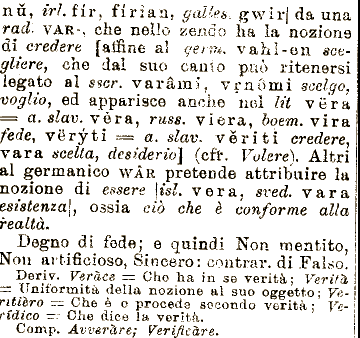 nŭ, irl. fír, fírian, galles. gwir| da una
rad. VAR-, che nello zendo ha la nozione
di credere [affine al germ. vahl-en sce-
gliere, che dal suo canto può ritenersi
legato al sscr. varâmi, vṛnómi scelgo,
voglio, ed apparisce anche nel lit vëra
= a. slav. vĕra, russ. viera, boem. vira
fede, vërýti = a. slav. vĕriti credere,
vara scelta, desiderio] (cfr. Volere). Altri
al germanico WÂR pretende attribuire la
nozione di essere |isl. vera, sved. vara
esistenza|, ossia ciò che è conforme alla
realtà.
Degno di fede; e quindi Non mentito,
Non artificioso, Sincero: contrar. di Falso.
Deriv. Veràce = Che ha in se verità; Verità
= Uniformità della nozione al suo oggetto; Ve-
ritièro = Che è o procede secondo verità; Ve-
rídico = Che dice la verità.
Comp. Avveràre; Verificàre.